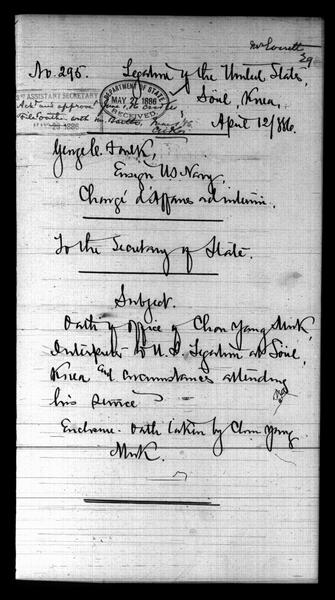 Mr Everett
No. 295. Legation of the United States,
Söul, Korea,
April 12/886.
2D ASSISTANT SECRETARY
MAY 28 1886
DEPARTMENT OF STATE
MAY 27 1886
RECEIVED
Ackd and approved June 1, 86
George C. Foulk,
Ensign U.S. Navy,
Chargé d'Affaires ad interim.
To the Secretary of State.
Subject.
Oath of office of Chon Yang Muk,
Interpreter to U.S. Legation at Söul,
Korea and circumstances attending
his service
Enclosure. Oath taken by Chon Yang
Muk.